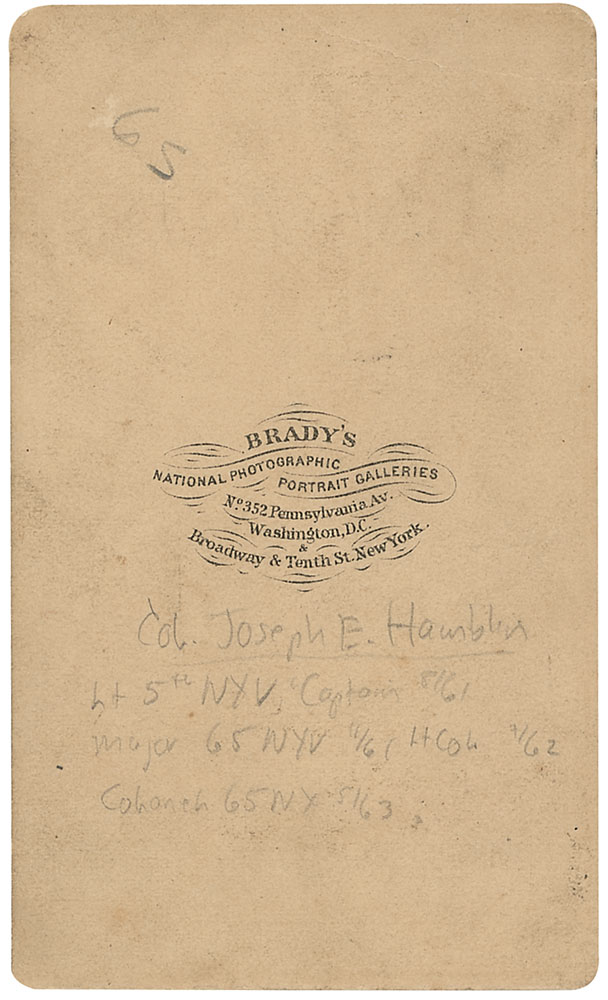 65
BRADY'S
NATIONAL PHOTOGRAPHIC
PORTRAIT GALLERIES
No. 352 Pennsylvania Av.
Washington, D.C.
&
Broadway & Tenth St. New York.
Col. Joseph E. Hamblin
Lt 5th NYV, Captain 8/61
major 65 NYV 11/61 Lt Col 7/62
Colonel 65 NY 5/63